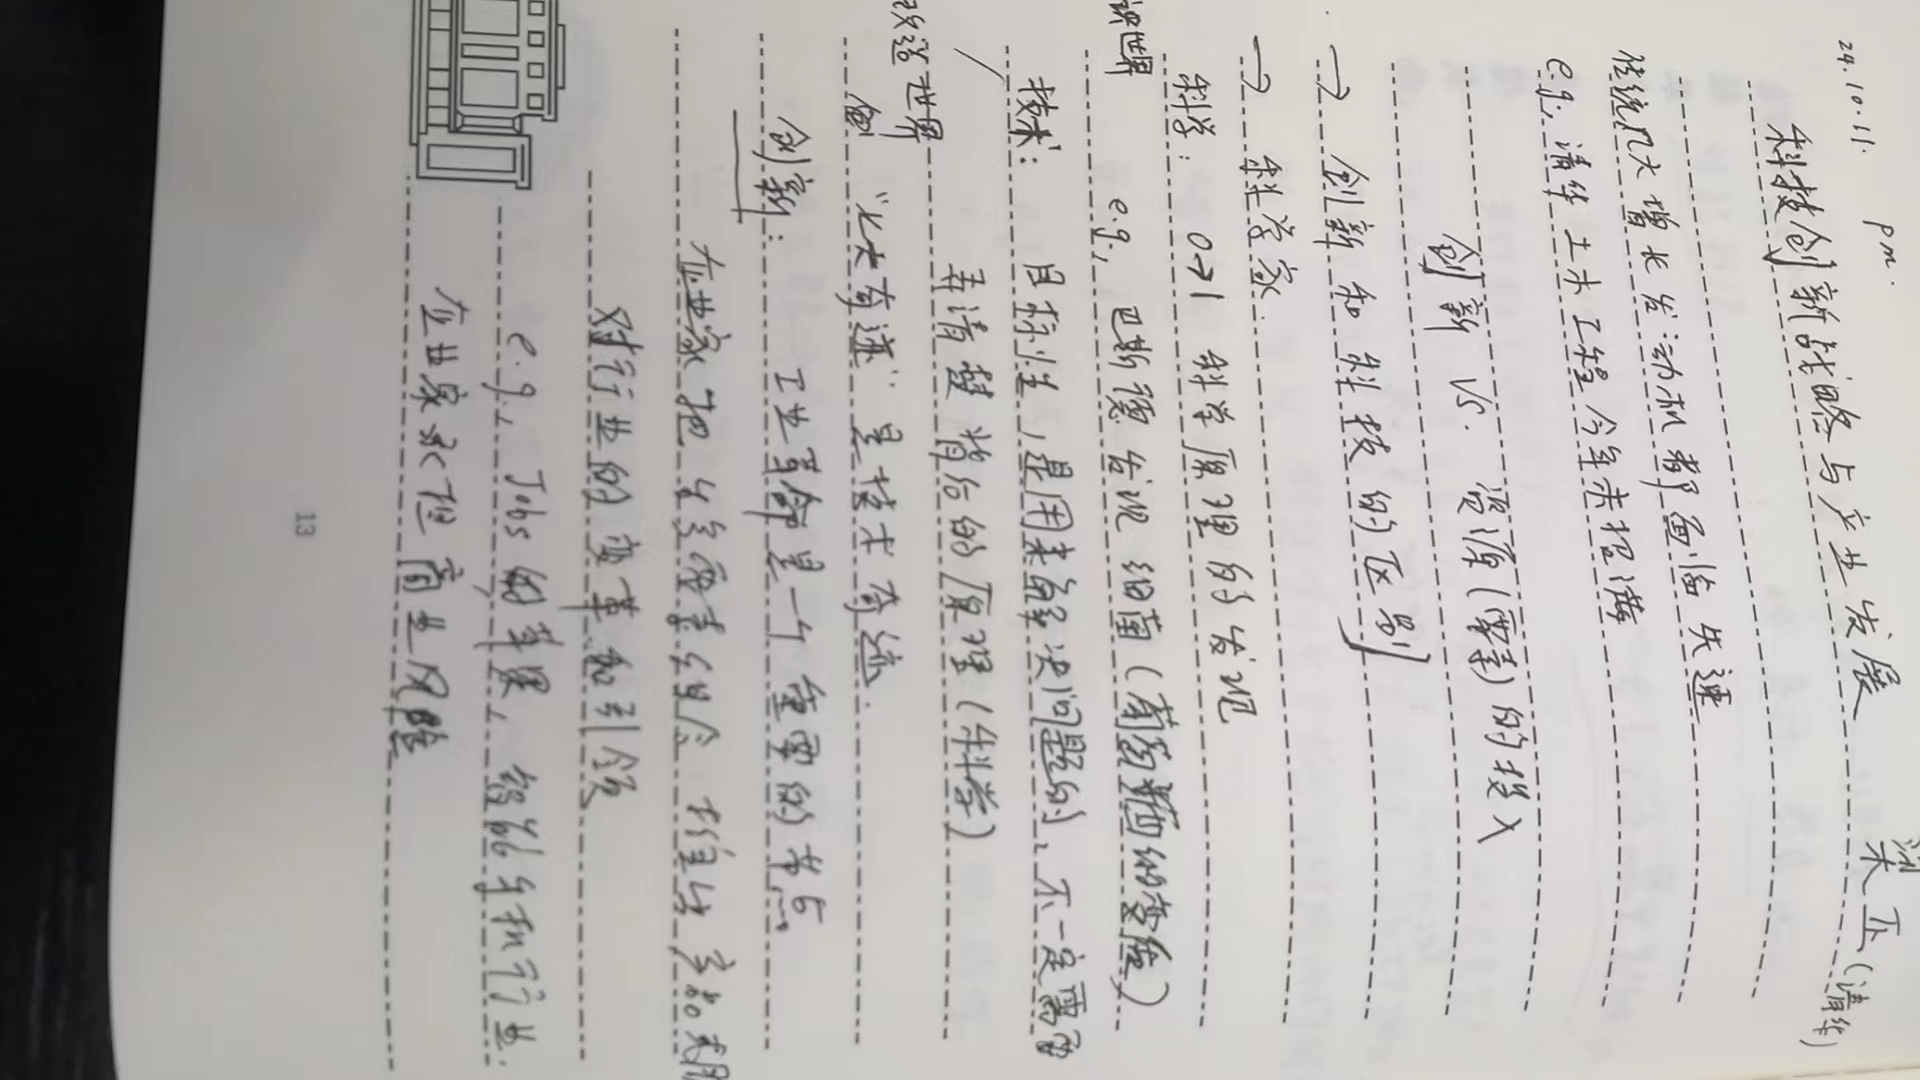 24.10.11. pm.
科技创新战略与产业发展
朱正(清华)
传统几大增长发动机都面临失速
e.g. 清华土木工程今年未招满
创新 VS. 资源(要素)的投入
→ 创新和科技的区别
→ 科学家.
科学: 0→1 科学原理的发现
识世界
e.g. 巴斯德发现细菌(葡萄酒的变酸)
技术: 目标性,是用来解决问题的、不一定需要
弄清楚背后的原理(科学)
改造世界
创
“大奇迹”是技术奇迹.
创新: 工业革命是一个重要的节点
企业家把生产要素组合 推出产品
对行业的变革和引领
e.g. Jobs 的苹果, 智能手机行业.
企业家承担商业风险
13